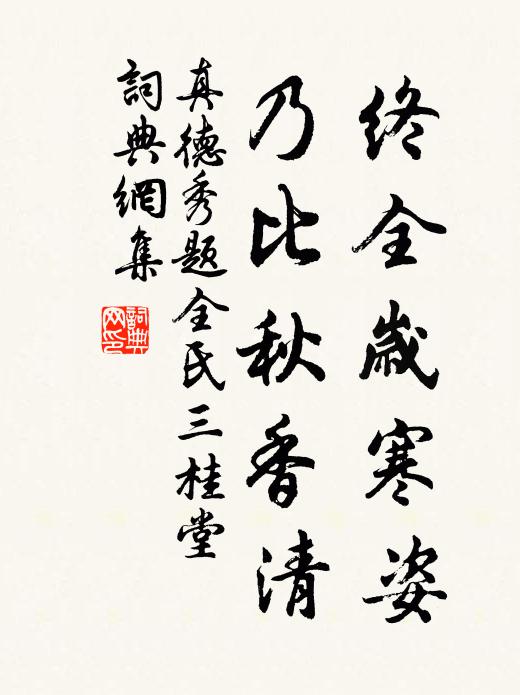 终全歳寒姿
乃比秋香清
真德秀题全氏三桂堂
詞典網集
詞典
网印